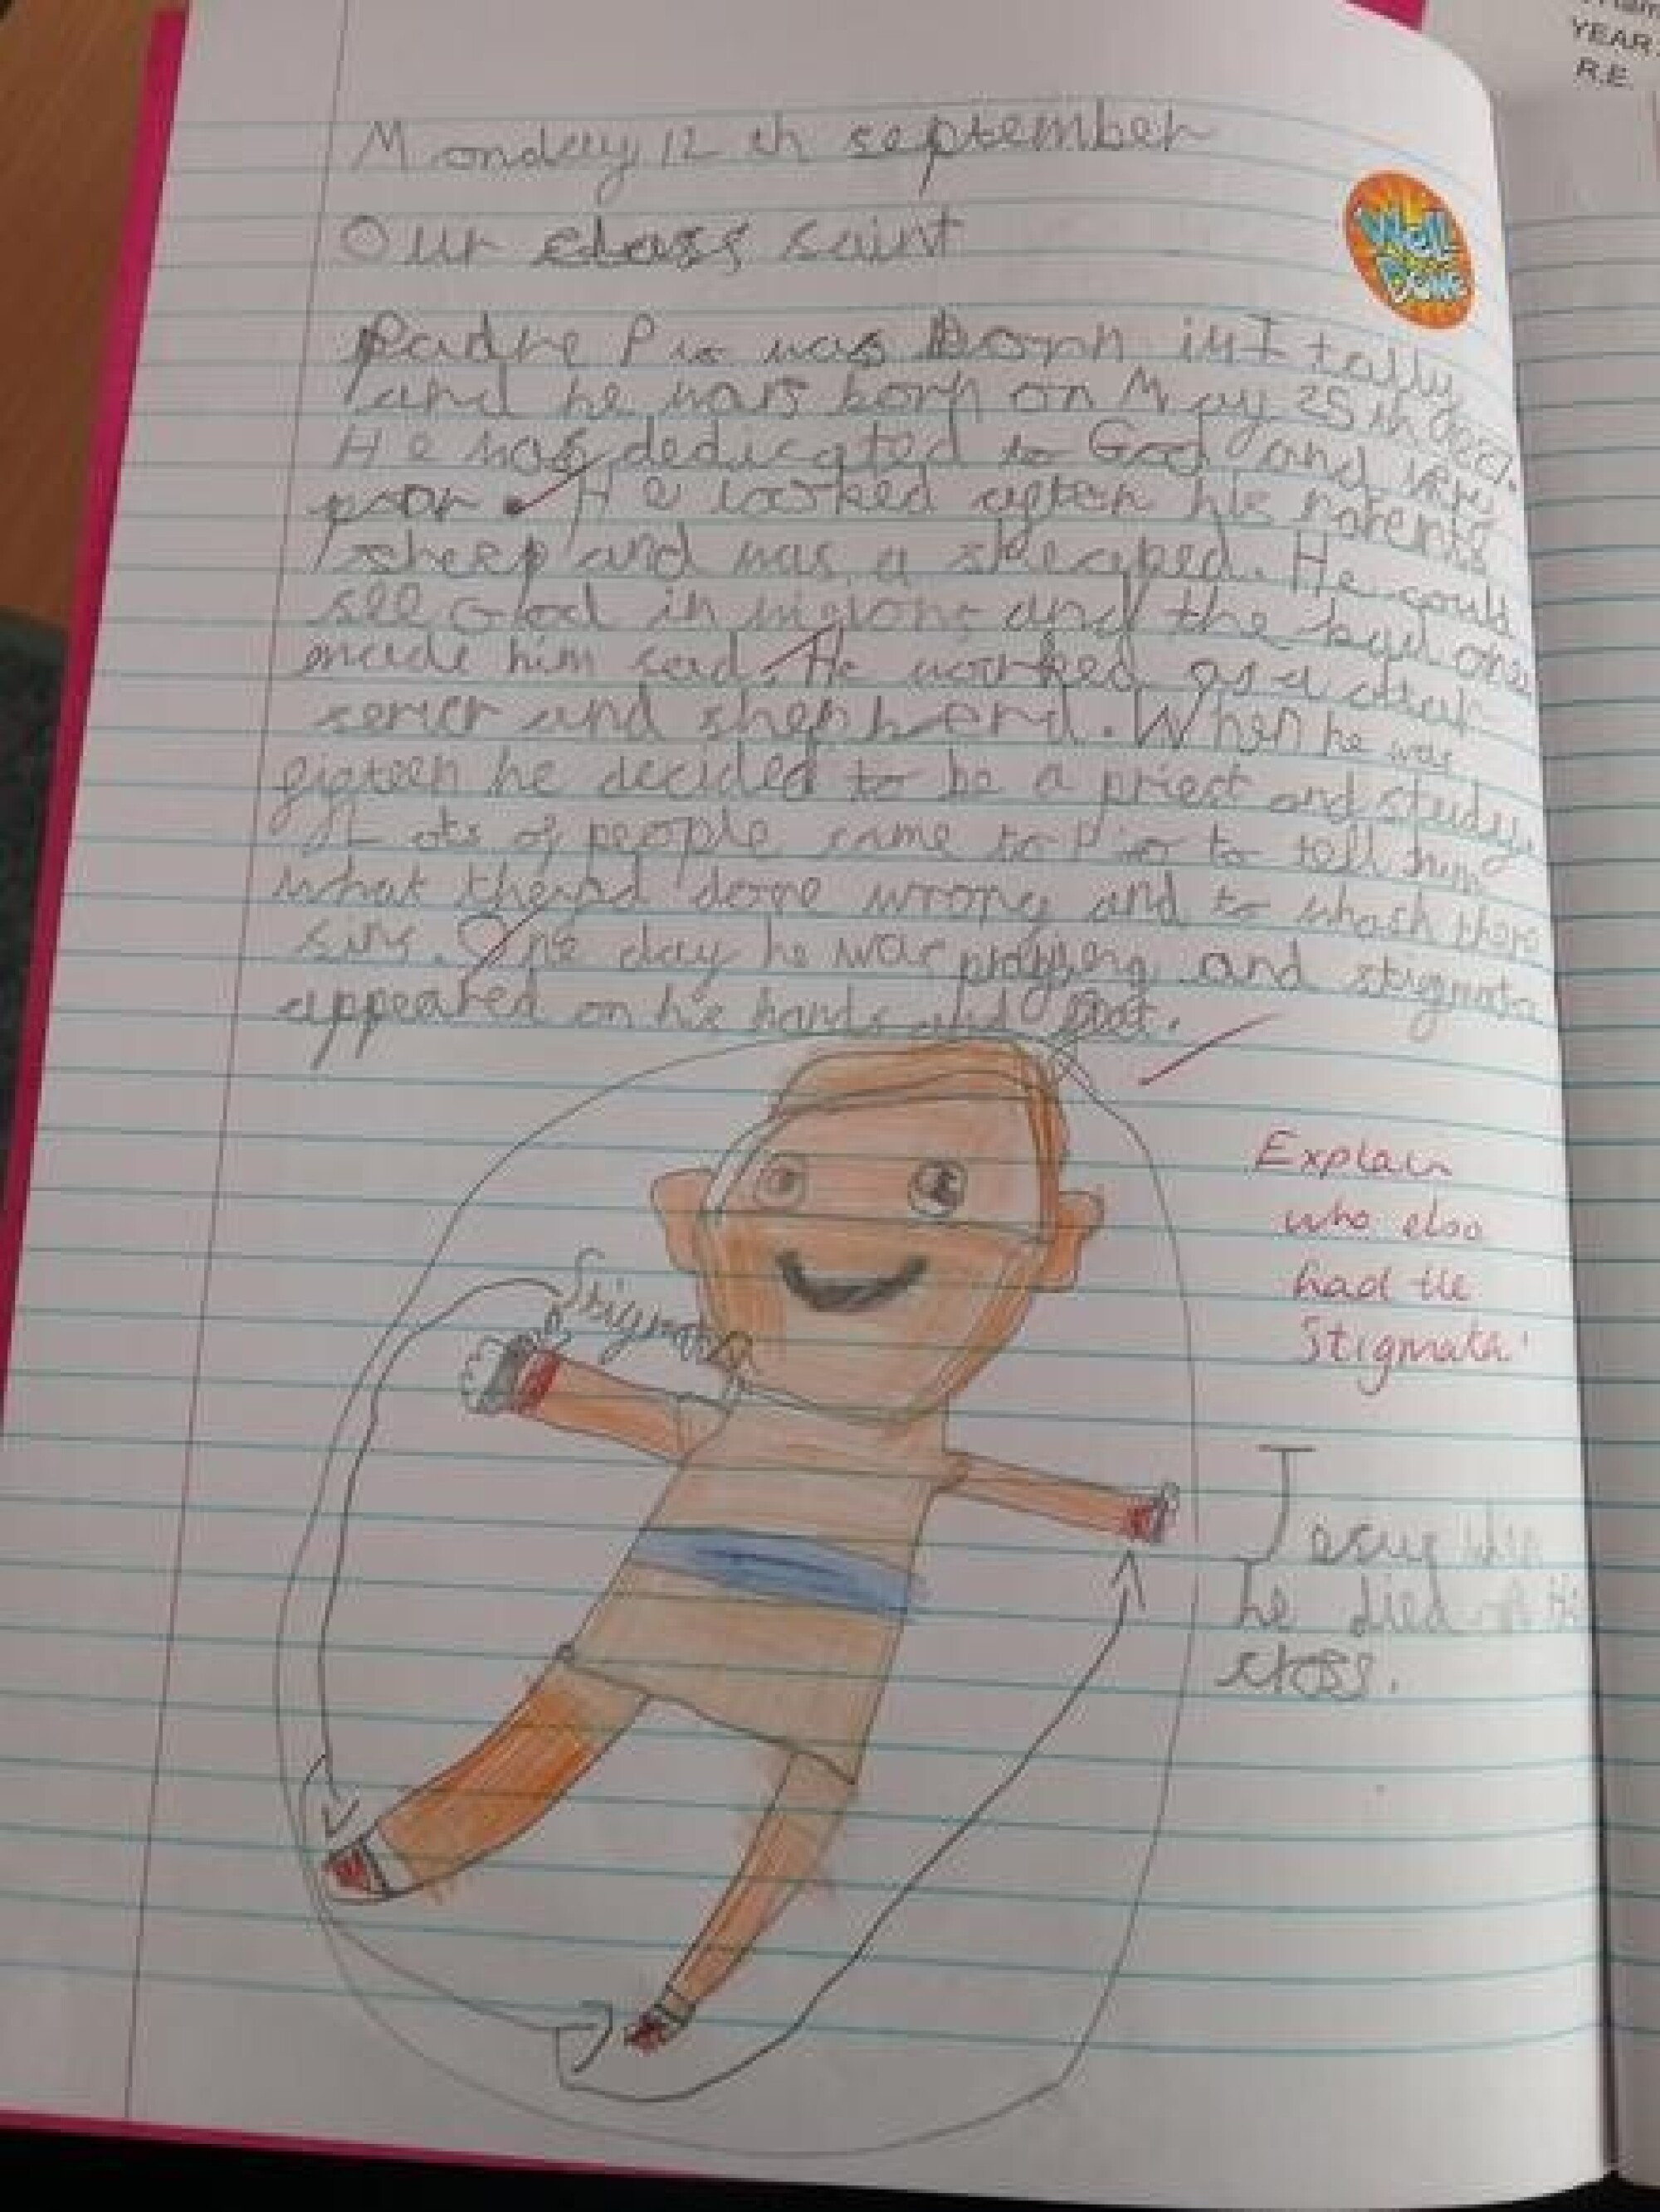 YEAR
R.E.
Monday 12 th september
Our class saint
Well
Done
Padre Pio was Born in Itally
and he was born on May 25th
He was dedicated to God and very
poor. He looked after his parents
sheep and was a sheaped. He could
see God in visions and the bad ones
made him sad. He worked as a
and shepherd. When he was
eigteen he decided to be a priest and study.
Lots of people came to Pio to tell him
what they'd done wrong and to whash there
sins. One day he was praying and stigmata
appeared on his hands and feet.
Explain
who else
had the
Stigmata.
Stigmata
Jesus when
he died
cross.